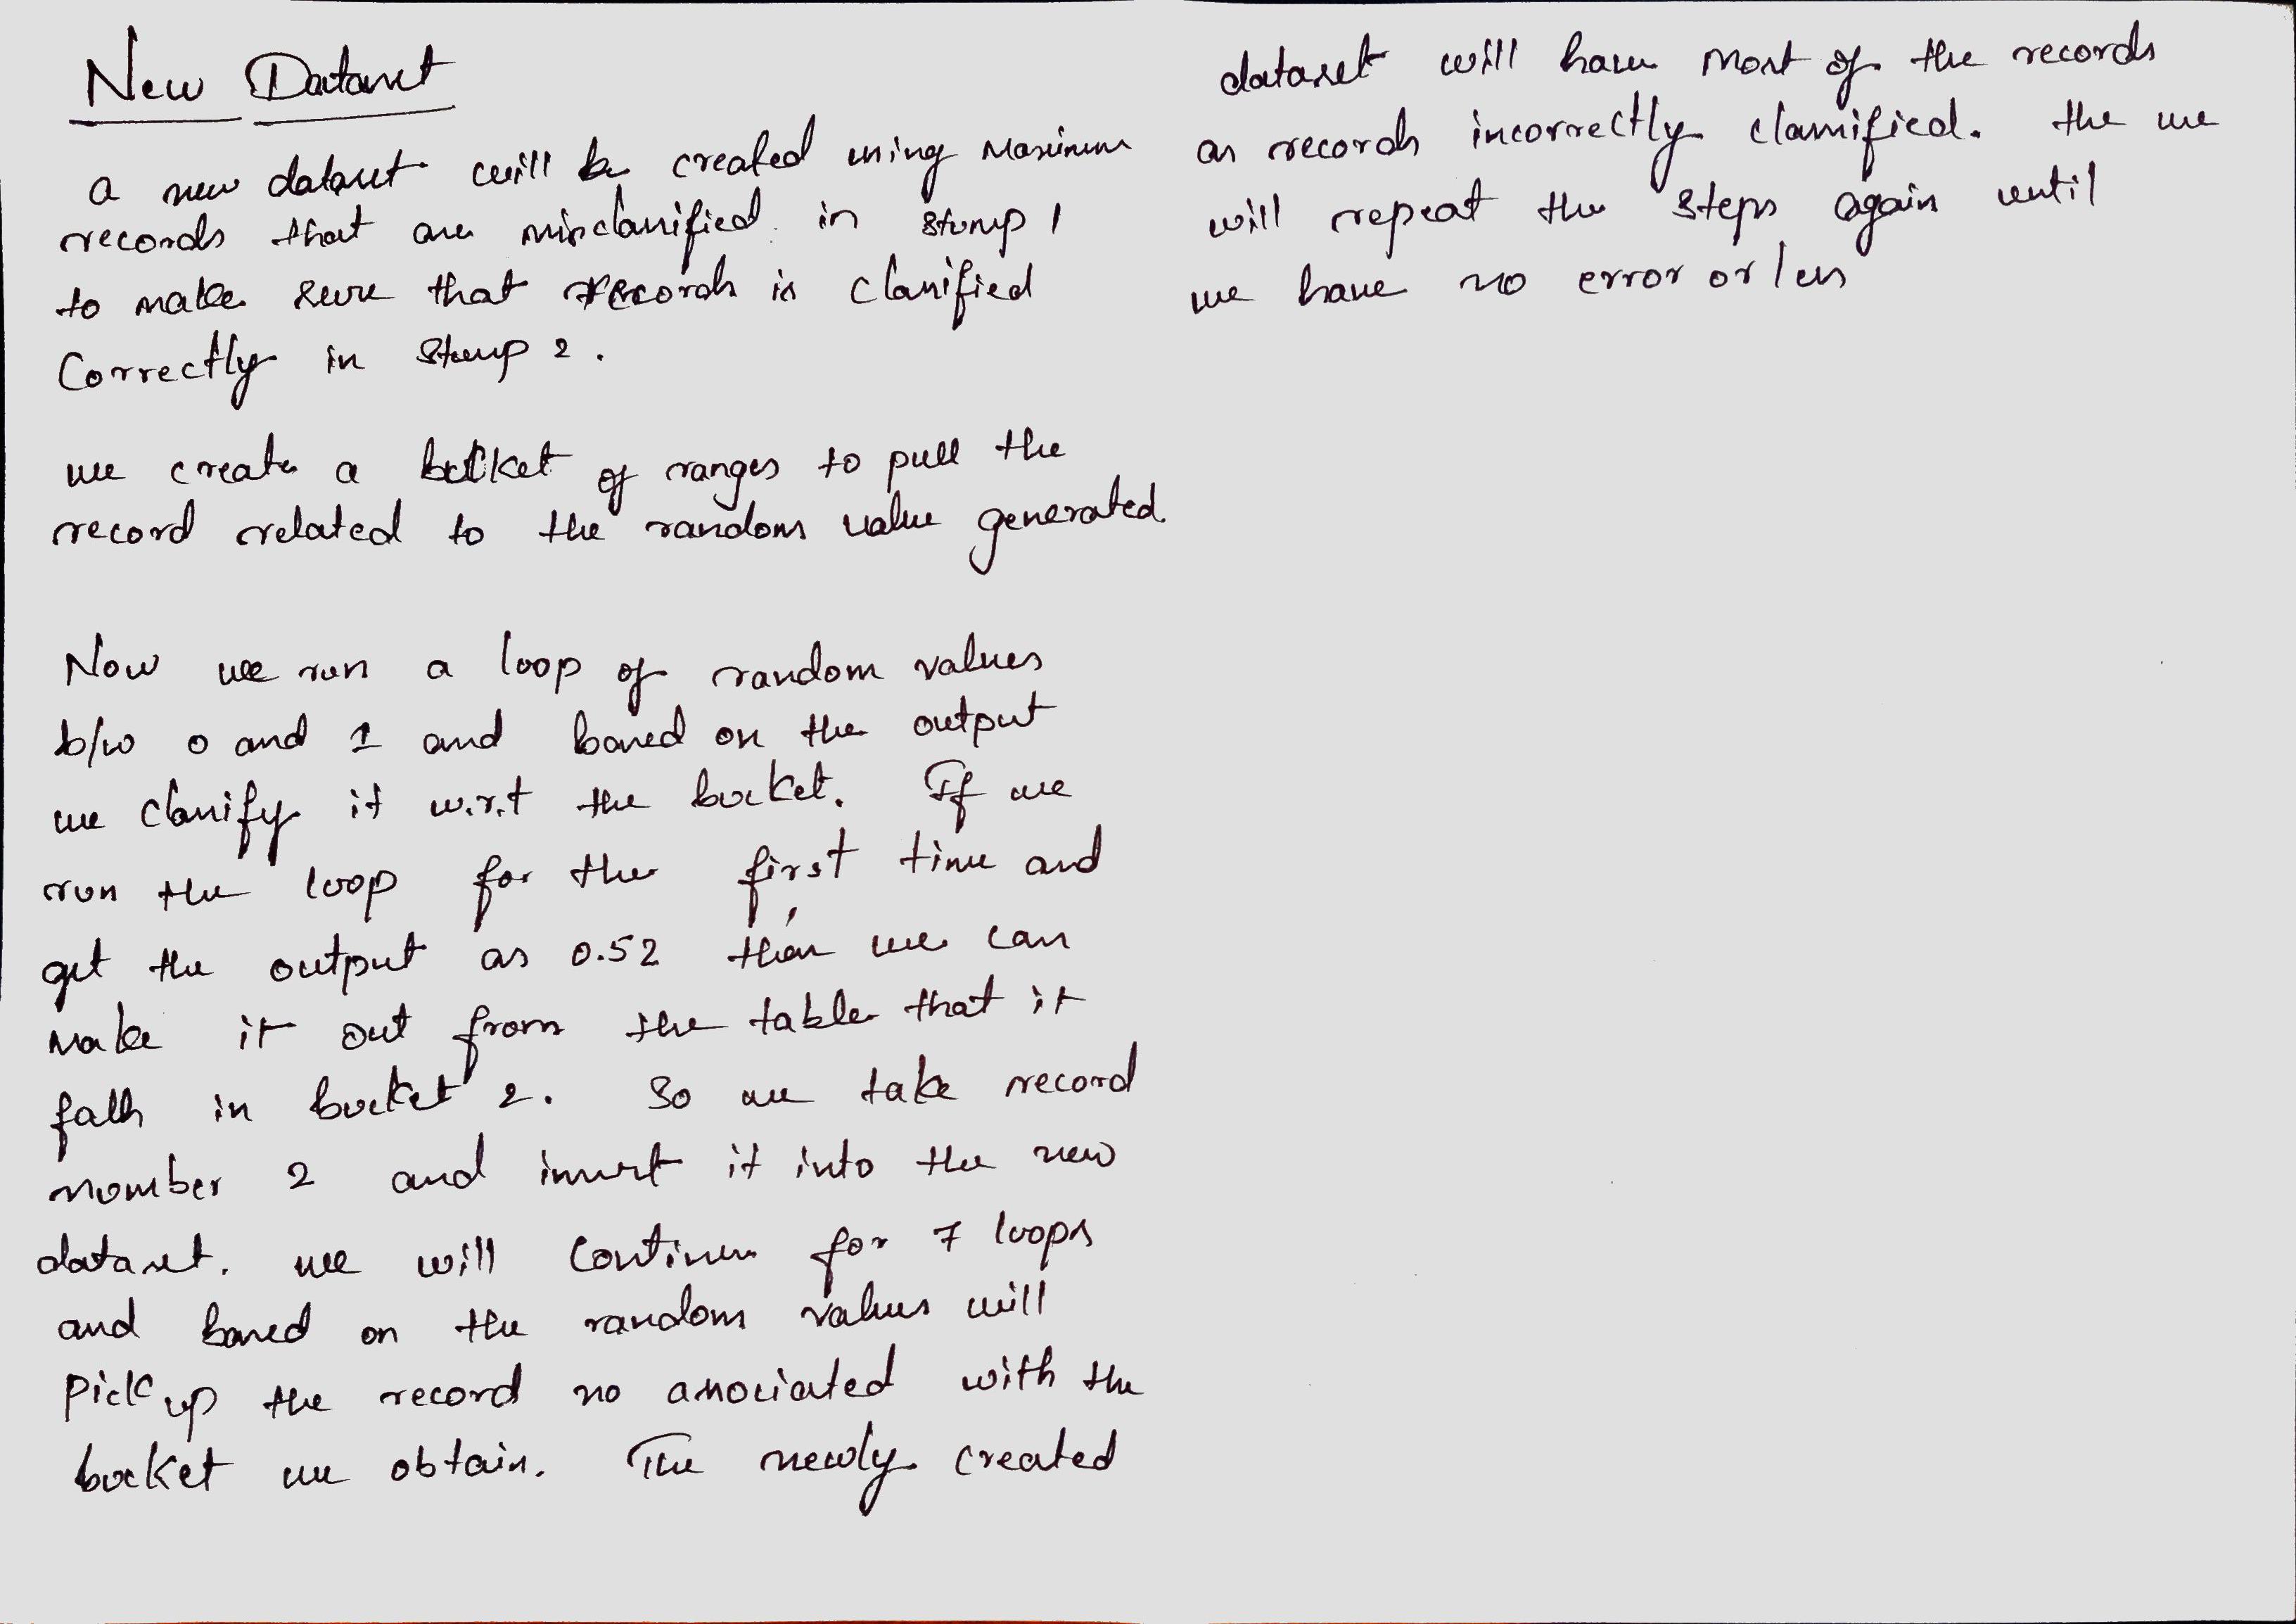 New Dataset
a new dataset will be created using Maximum
records that are misclassified in stump 1
to make sure that records is classified
Correctly in Stump 2.
we create a bucket of ranges to pull the
record related to the random value generated.
Now we run a loop of random values
b/w 0 and 1 and based on the output
we classify it w.r.t the bucket. If we
run the loop for the first time and
get the output as 0.52 then we can
make it out from the table that it
falls in bucket 2. So we take record
number 2 and insert it into the new
dataset. we will continue for 7 loops
and based on the random values will
Pick up the record no associated with the
bucket we obtain. The newly created
dataset will have most of the records
as records incorrectly classified. the we
will repeat the steps again until
we have no error or less